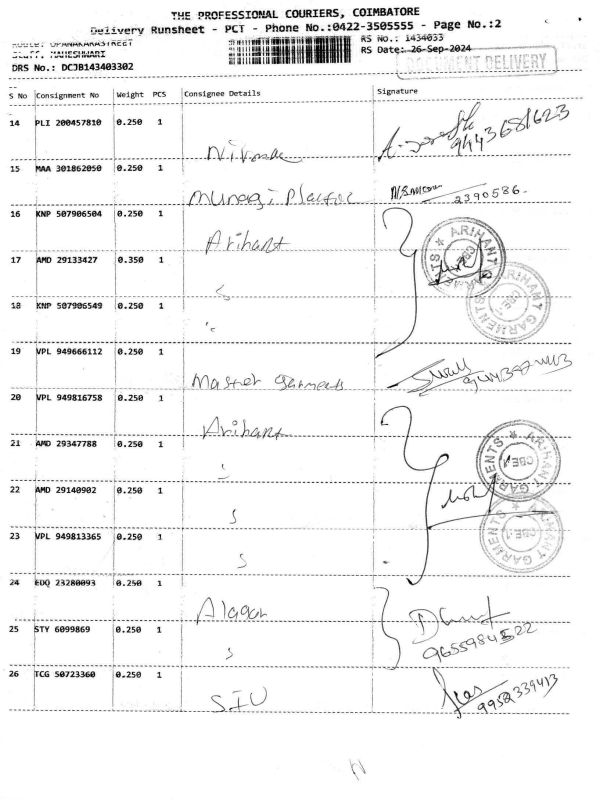 THE PROFESSIONAL COURIERS, COIMBATORE
Delivery Runsheet - PCT - Phone No.:0422-3505555 - Page No.:2
Route: OPANAKARASTREET
Staff: MAHESHWARI
RS No.: 1434033
RS Date: 26-Sep-2024
DRS No.: DCJB143403302
DOCUMENT DELIVERY
S No Consignment No Weight PCS Consignee Details Signature
14 PLI 200457810 0.250 1
15 MAA 301862050 0.250 1 2390586
16 KNP 507906504 0.250 1 Arihant
17 AMD 29133427 0.350 1
18 KNP 507906549 0.250 1
ARIHANT GARMENTS CBE-1
ARIHANT GARMENTS CBE-1
19 VPL 949666112 0.250 1 Master garments
20 VPL 949816758 0.250 1 Arihant
21 AMD 29347788 0.250 1
22 AMD 29140902 0.250 1
23 VPL 949813365 0.250 1
ARIHANT GARMENTS CBE-1
ARIHANT GARMENTS CBE-1
24 EDQ 23280093 0.250 1 Alagar
25 STY 6099869 0.250 1
26 TCG 50723360 0.250 1 SIU 9952339413